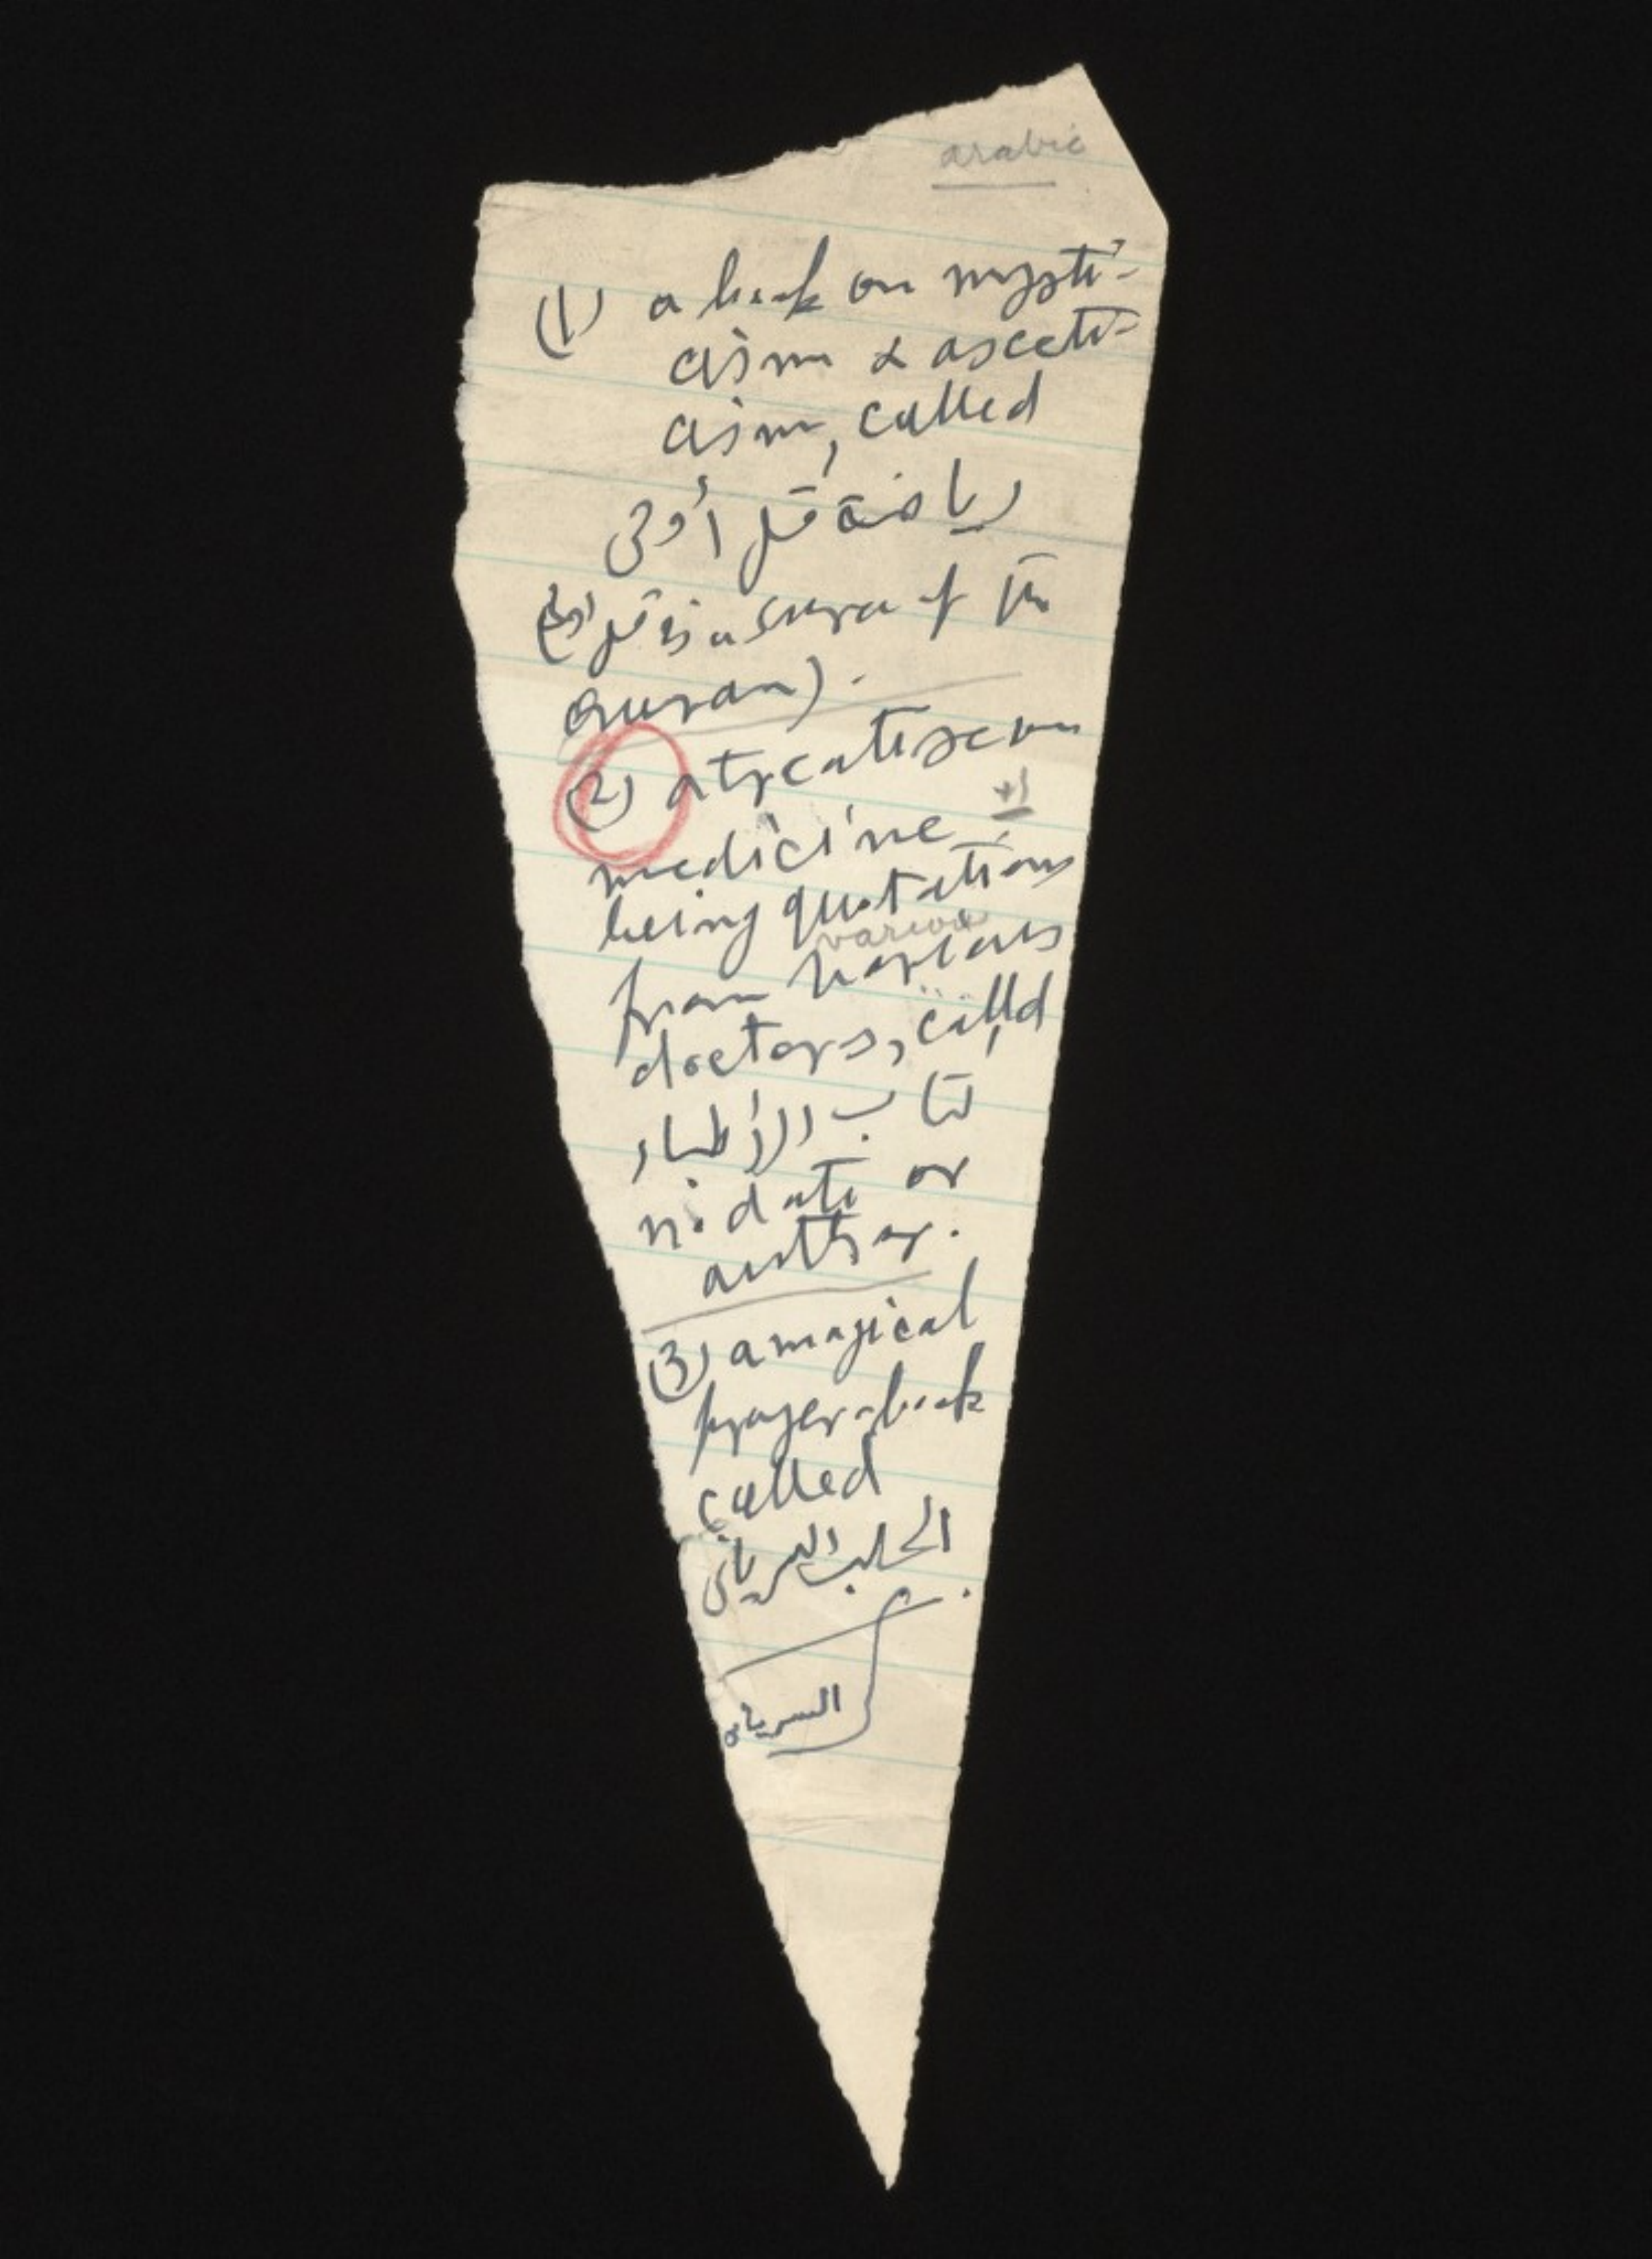 arabic
(1) a book on mysti-
cism & asceti-
cism, called
رياضة قل أوحى
(قل أوحى is a sura of the
Quran).
(2) a treatise on
medicine
being quotations
various
from various
doctors, called
كتاب الأطباء
no date or
author.
(3) a magical
prayer-book
called
الجلب السريانى
السريان